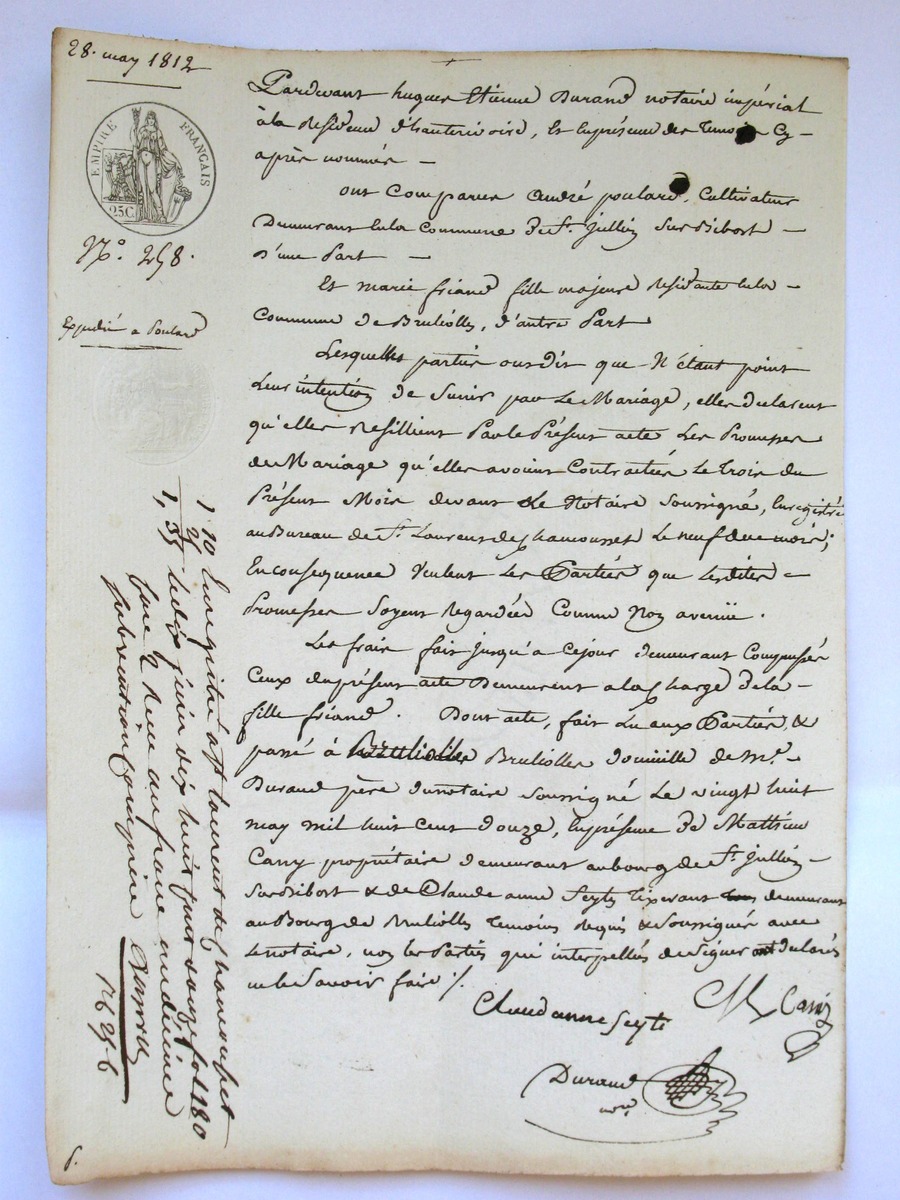 28. may 1812
EMPIRE FRANÇAIS
25C.
N.° 258.
Expedié a Poulard
Pardevant hugues Etienne Durand notaire impérial
à la Résidence d'hauterivoire, & En présence des temoins Cy-
après nommés —
ont Comparus André poulard, Cultivateur
Demeurant en la Commune de St. Jullien Sur Bibost —
D'une Part —
Et marie friand fille majeure Residante en la —
Commune de Brulliolles, d'autre Part
Lesquelles parties ont dit que N'étant point
Leur intention de S'unir par Le Mariage, elles declarent
qu'elles Resillient Par le Présent acte Les Promesses
de Mariage qu'elles avoient Contractées Le trois du
Présent Mois devant Le Notaire Soussigné, Enregistré
au Bureau de St. Laurent de Chamousset Le neuf du mois;
En consequence Veulent Les Parties que Lesdites =
Promesses Soyent Regardées Comme Non avenüe.
Les frais fait jusqu'a ce jour demeurant Compensés
Ceux du présent acte Demeurent a la Charge de la —
fille friand. Dont acte, fait Lu aux Parties, &
passé à Brulliolles domicille de Mr.
Durand père du notaire Soussigné Le vingt huit
may mil huit Cent douze, En présence de Mathieu
Carry propriétaire demeurant au bourg de St. Jullien —
Sur Bibost & de Claude anne Seyte tixerant demeurant
au Bourg de Brulliolles temoins Requis & Soussignés avec
Le notaire, non les Parties qui interpellés de Signer ont declarés
ne le Savoir faire ./.
Claud anne Seyte
Durand
nore
1 10
25
1, 35
Enregistré a St laurent de chamousset
le dix juin dix huit cent douze fol 180
reçu un franc un decime
subvention comprise
6.